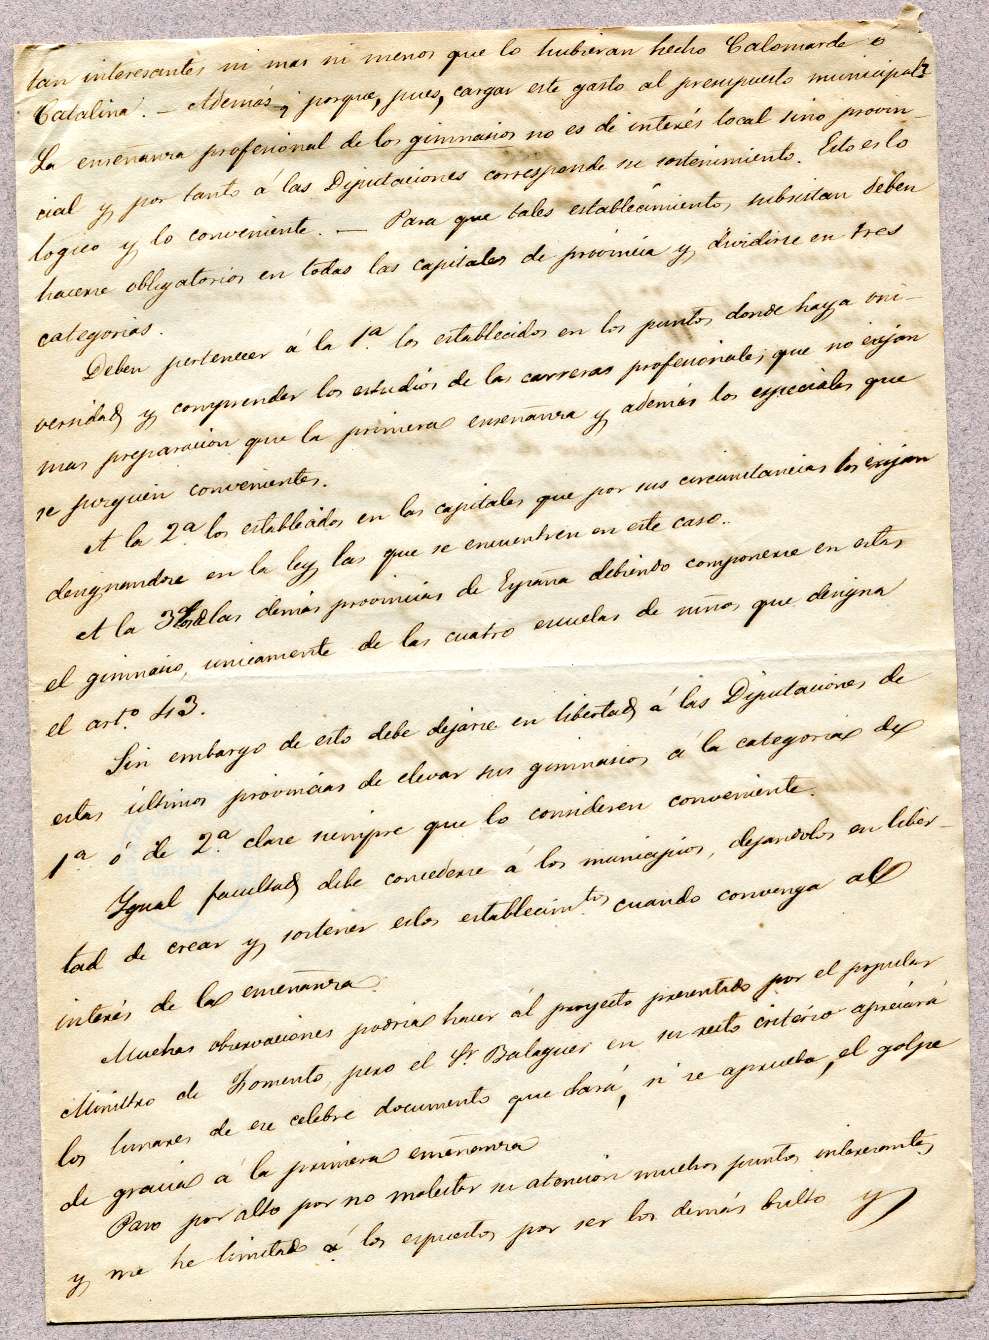 tan interesantes ni mas ni menos que lo hubieran hecho Calomarde o
Catalina. — Además, ¿porque, pues, cargar este gasto al presupuesto municipal?
La enseñanza profesional de los gimnasios no es de interés local sino provin-
cial y por tanto á las Diputaciones corresponde su sostenimiento. Esto es lo
logico y lo conveniente. — Para que tales establecimientos subsistan deben
hacerse obligatorios en todas las capitales de provincia y dividirse en tres
categorias.
Deben pertenecer á la 1ª. los establecidos en los puntos donde haya uni-
versidad y comprender los estudios de las carreras profesionales que no exijan
mas preparacion que la primera enseñanza y además los especiales que
se juzguen convenientes.
A la 2ª los establecidos en las capitales que por sus circunstancias los exijan
designandose en la ley las que se encuentren en este caso.
A la 3ª los de las demás provincias de España debiendo componerse en estas
el gimnasio, unicamente de las cuatro escuelas de niños que designa
el artº. 43.
Sin embargo de esto debe dejarse en libertad á las Diputaciones de
estas últimas provincias de elevar sus gimnasios á la categoria de
1ª ó de 2ª. clase siempre que lo consideren conveniente.
Ygual facultad debe concederse á los municipios, dejandolos en liber-
tad de crear y sostener estos establecimtos. cuando convenga al
interés de la enseñanza.
Muchas observaciones podria hacer al proyecto presentado por el popular
Ministro de Fomento, pero el Sr. Balaguer en su recto critério apreciará
los lunares de ese celebre documento que dará, si se aprueba, el golpe
de gracia á la primera enseñanza
Paso por alto por no molestar su atencion muchos puntos interesantes
y me he limitado á los espuestos por ser los demás bulto y